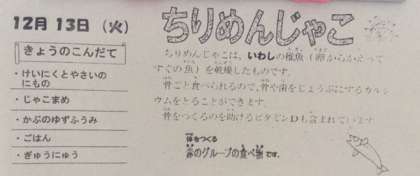 12月 13日 (火)
きょうのこんだて
・けいにくとやさいの
にもの
・じゃこまめ
・かぶのゆずふうみ
・ごはん
・ぎゅうにゅう
ちりめんじゃこ
ちりめんじゃこは、いわしの稚魚(卵からかえって
すぐの魚)を乾燥したものです。
骨ごと食べられるので、骨や歯をじょうぶにするカルシ
ウムをとることができます。
骨をつくるのを助けるビタミンDも含まれています
体をつくる
赤のグループの食べ物です。